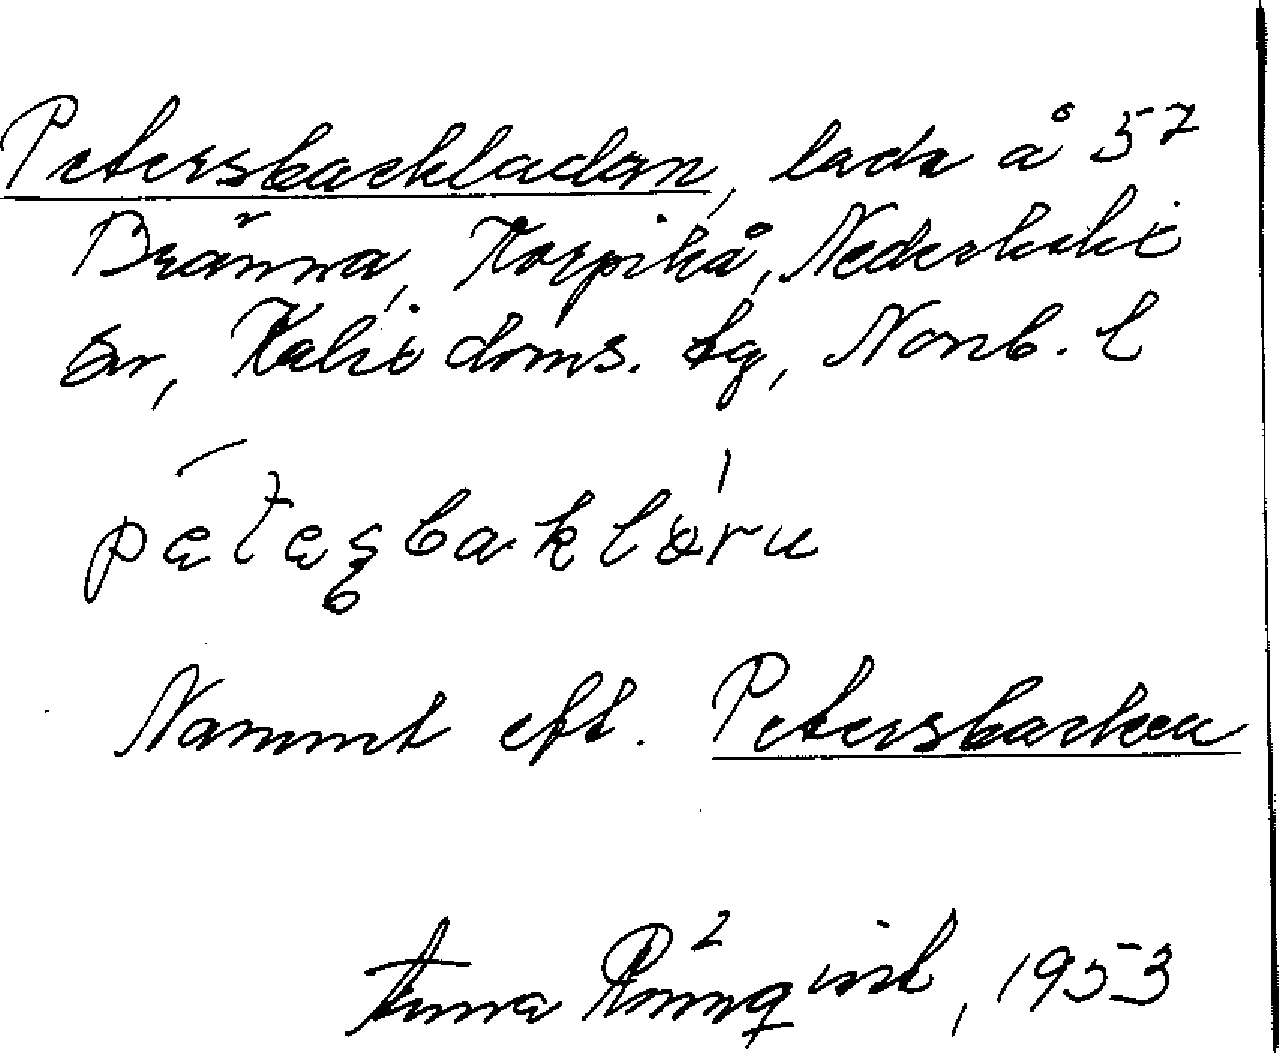 Petersbackladan, lada å 5⁷
Bränna, Korpikå, Nederkalix
sn, Kalix doms. tg, Norrb. l
Namnt eft. Petersbacken
Anna Rönnqvist, 1953